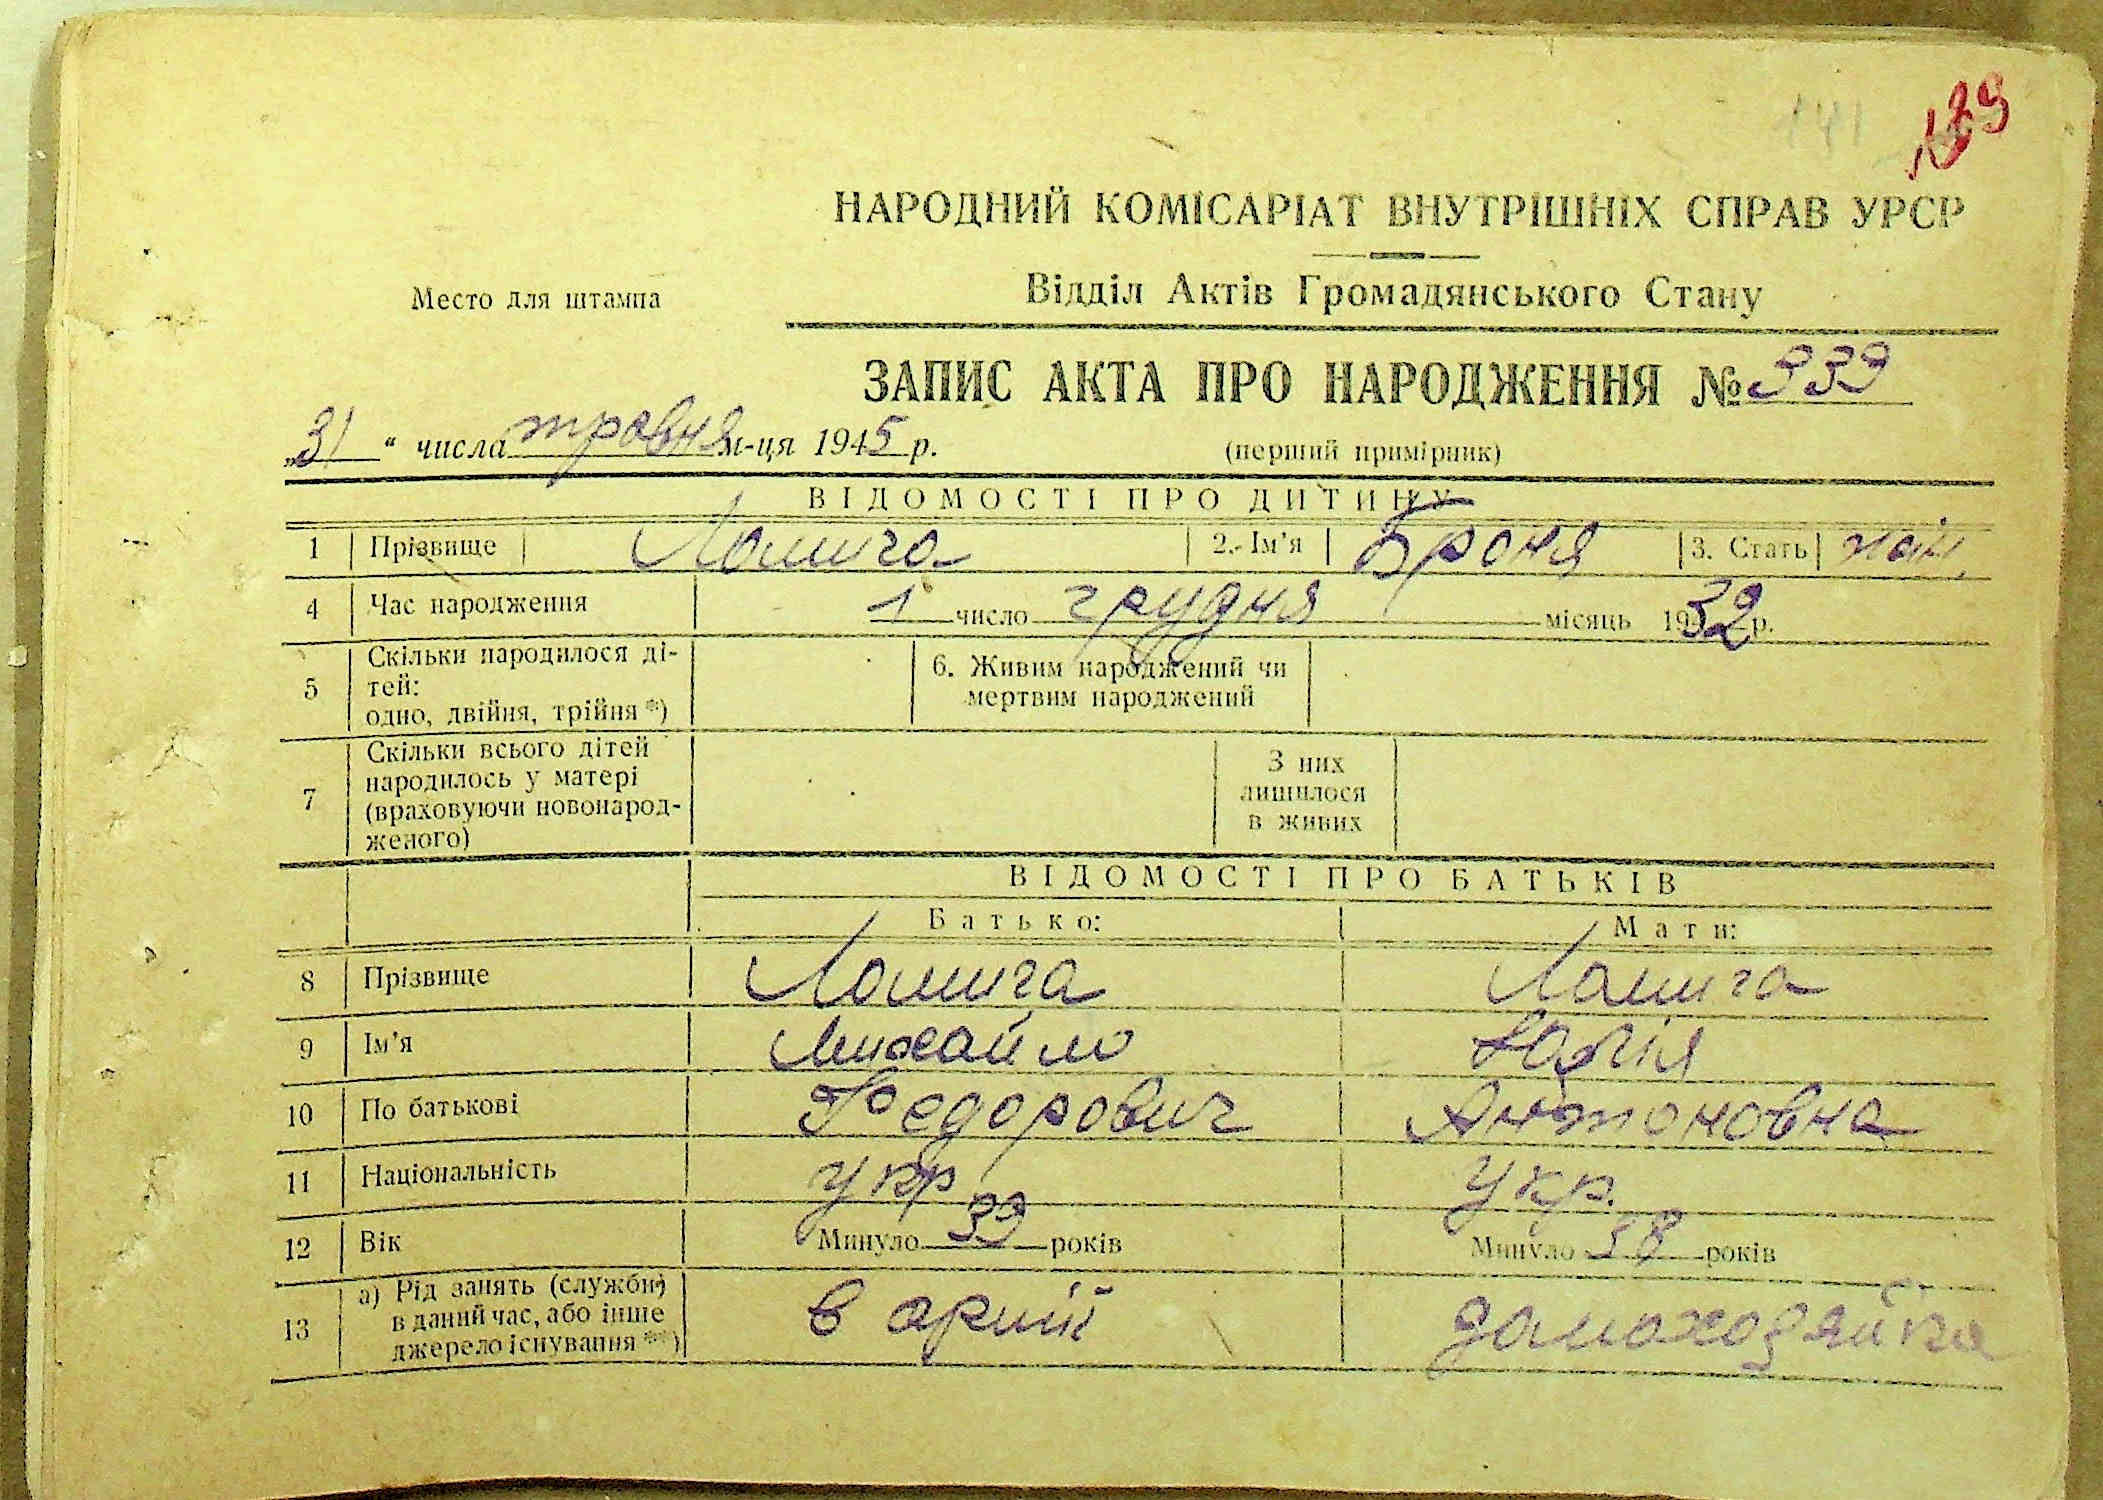 141 139
НАРОДНИЙ КОМІСАРІАТ ВНУТРІШНІХ СПРАВ УРСР
Место для штампа
Відділ Актів Громадянського Стану
ЗАПИС АКТА ПРО НАРОДЖЕННЯ № 939
„31“ числа травня м-ця 1945 р. (перший примірник)
ВІДОМОСТІ ПРО ДИТИНУ
1 Прізвище Ломига 2. Ім'я Броня 3. Стать жін.
4 Час народження 1 число грудня місяць 1932 р.
5 Скільки народилося ді-
тей:
одно, двійня, трійня *)
6. Живим народжений чи
мертвим народжений
7 Скільки всього дітей
народилось у матері
(враховуючи новонарод-
женого)
З них
лишилося
в живих
ВІДОМОСТІ ПРО БАТЬКІВ
Батько: Мати:
8 Прізвище Ломига Ломига
9 Ім'я Михайло Юлія
10 По батькові Федорович Антоновна
11 Національність укр укр.
12 Вік Минуло 39 років Минуло 38 років
13 а) Рід занять (служби)
в даний час, або інше
джерело існування **)
в армії домохозяйка